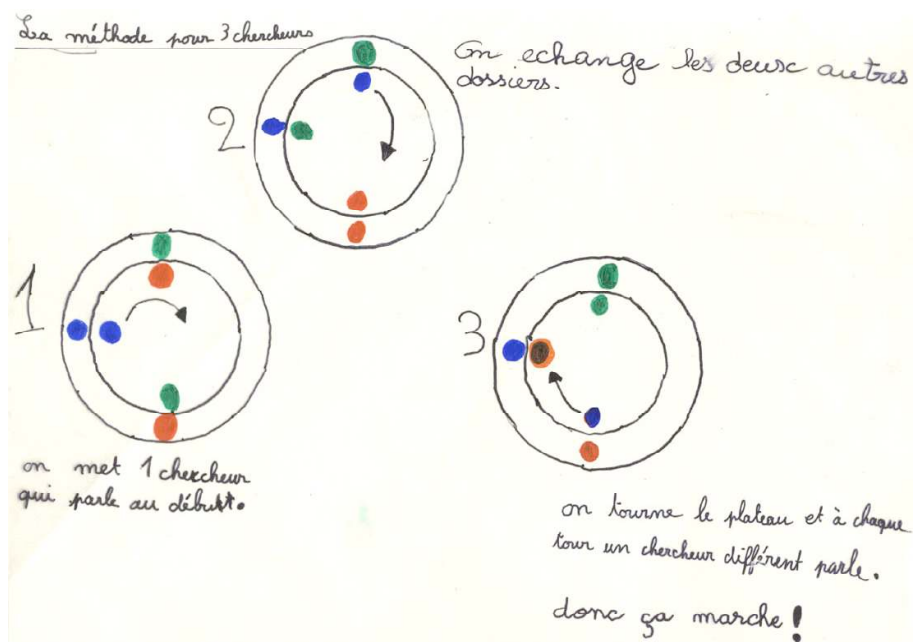 La méthode pour 3 chercheurs
On echange les deux autres
dossiers.
2
1
on met 1 chercheur
qui parle au début.
3
on tourne le plateau et à chaque
tour un chercheur différent parle.
donc ça marche !